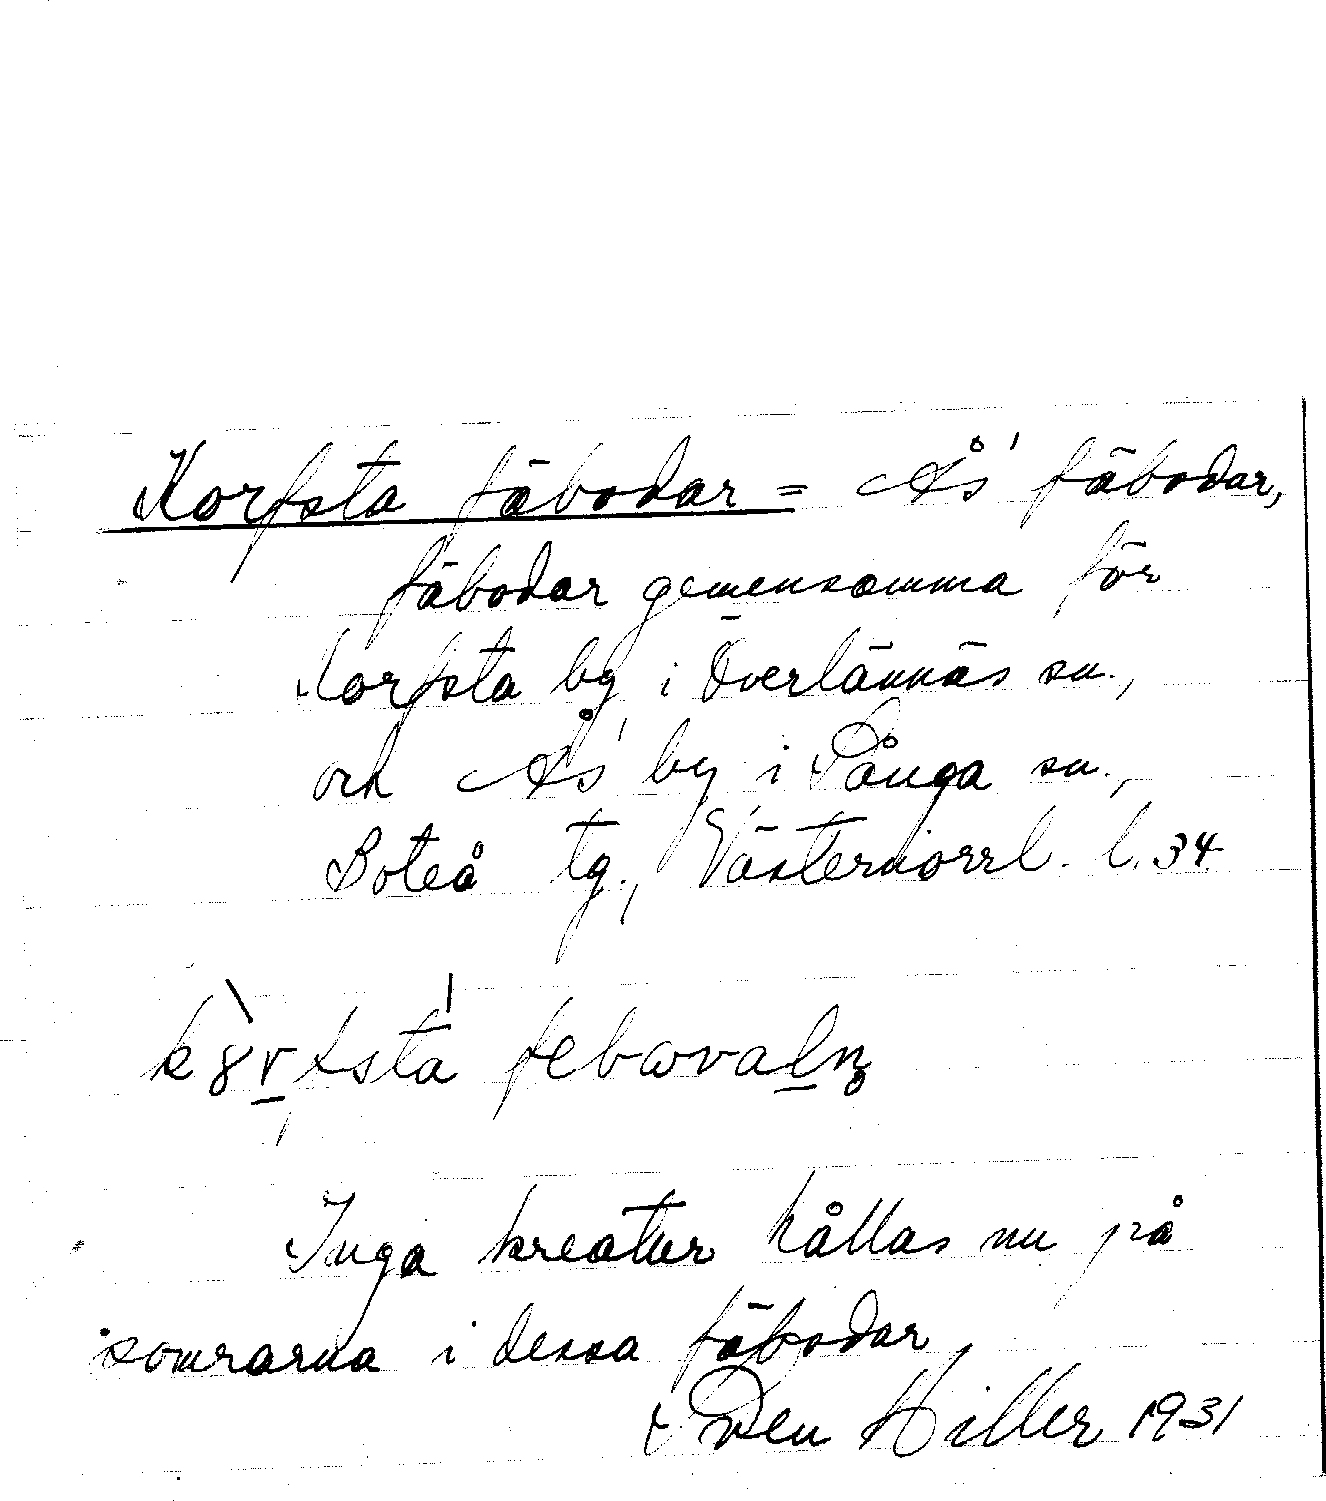 Korfsta fäbodar = Ås' fäbodar,
fäbodar gemensamma för
Korfsta by i Överlännäs sn.,
och Ås' by i Sånga sn.,
Boteå tg., Västernorrl. l. 34
Inga kreatur hållas nu på
somrarna i dessa fäbodar
Sven Hiller 1931